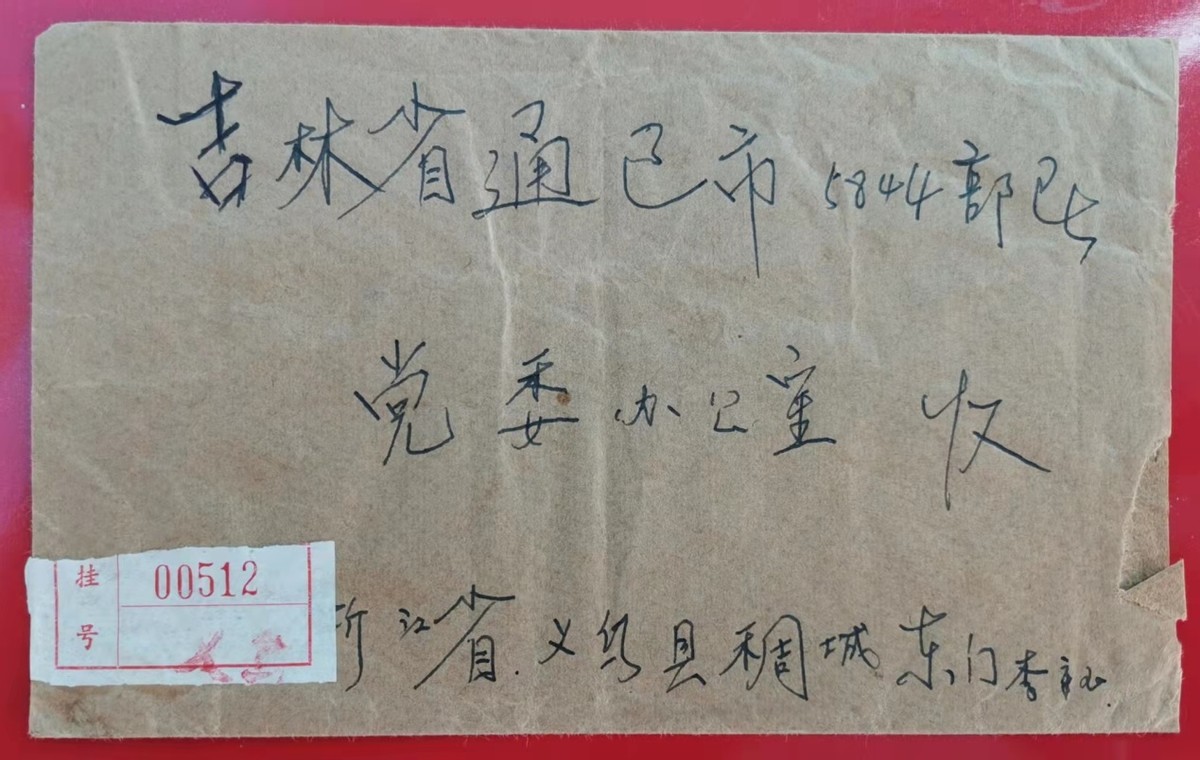 吉林省通已市 5844部队
党委办公室 收
挂号 00512
浙江省.义乌县稠城东门李